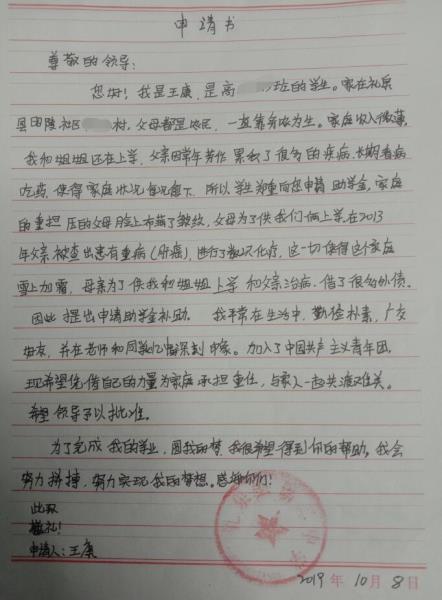 申请书
尊敬的领导:
您好!我是王康,是高 班的学生。家在礼泉
县田陵社区 村,父母都是农民,一直靠务农为生。家庭收入微薄,
我和姐姐还在上学,父亲因常年劳作,累积了很多的疾病,长期看病
吃药,使得家庭状况每况愈下,所以学生郑重向您申请助学金,家庭
的重担压的父母脸上布满了皱纹,父母为了供我们俩上学,在2013
年父亲被查出患有重病(肝癌),进行了数次化疗,这一切使得这个家庭
雪上加霜,母亲为了供我和姐姐上学和父亲治病,借了很多外债。
因此提出申请助学金补助。我平常在生活中,勤俭朴素,广交
好友,并在老师和同学心里留深刻印象。加入了中国共产主义青年团,
现希望凭借自己的力量为家庭承担重任,与家人一起共渡难关。
希望领导予以批准。
为了完成我的学业,圆我的梦,我很希望得到你的帮助。我会
努力拼搏,努力实现我的梦想。感谢你们!
此致
敬礼!
申请人:王康
2019年10月8日